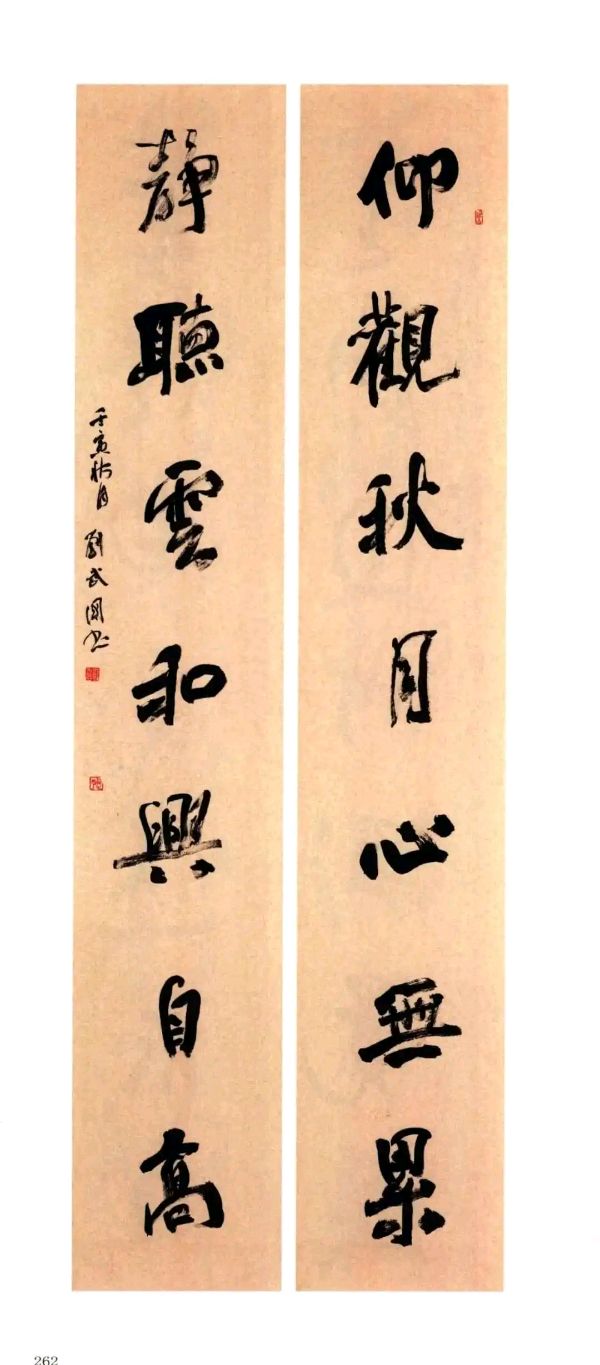 仰觀秋月心無累
靜聽雲和興自高
壬寅秋月 劉武國書
262